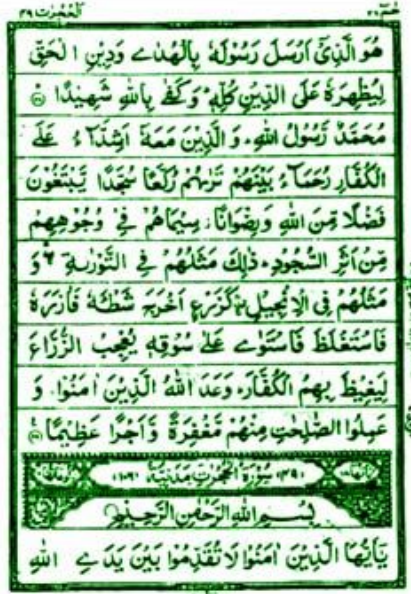 الحجرت ٤٩ حٰمٓ ٢٦
هُوَ الَّذِیْۤ اَرْسَلَ رَسُوْلَهٗ بِالْهُدٰی وَدِیْنِ الْحَقِّ
لِیُظْهِرَهٗ عَلَی الدِّیْنِ كُلِّهٖ ؕ وَكَفٰی بِاللّٰهِ شَهِیْدًا ﴿۲۸﴾
مُحَمَّدٌ رَّسُوْلُ اللّٰهِ ؕ وَالَّذِیْنَ مَعَهٗۤ اَشِدَّآءُ عَلَی
الْكُفَّارِ رُحَمَآءُ بَیْنَهُمْ تَرٰىهُمْ رُكَّعًا سُجَّدًا یَّبْتَغُوْنَ
فَضْلًا مِّنَ اللّٰهِ وَرِضْوَانًا ؗ سِیْمَاهُمْ فِیْ وُجُوْهِهِمْ
مِّنْ اَثَرِ السُّجُوْدِ ؕ ذٰلِكَ مَثَلُهُمْ فِی التَّوْرٰىةِ ۛۖ وَ
مَثَلُهُمْ فِی الْاِنْجِیْلِ ۛ۫ كَزَرْعٍ اَخْرَجَ شَطْـَٔهٗ فَاٰزَرَهٗ
فَاسْتَغْلَظَ فَاسْتَوٰی عَلٰی سُوْقِهٖ یُعْجِبُ الزُّرَّاعَ
لِیَغِیْظَ بِهِمُ الْكُفَّارَ ؕ وَعَدَ اللّٰهُ الَّذِیْنَ اٰمَنُوْا وَ
عَمِلُوا الصّٰلِحٰتِ مِنْهُمْ مَّغْفِرَةً وَّاَجْرًا عَظِیْمًا ﴿۲۹﴾
(۴۹) سُوْرَةُ الْحُجُرٰتِ مَدَنِیَّةٌ (۱۰۶)
بِسْمِ اللّٰهِ الرَّحْمٰنِ الرَّحِیْمِ
یٰۤاَیُّهَا الَّذِیْنَ اٰمَنُوْا لَا تُقَدِّمُوْا بَیْنَ یَدَیِ اللّٰهِ